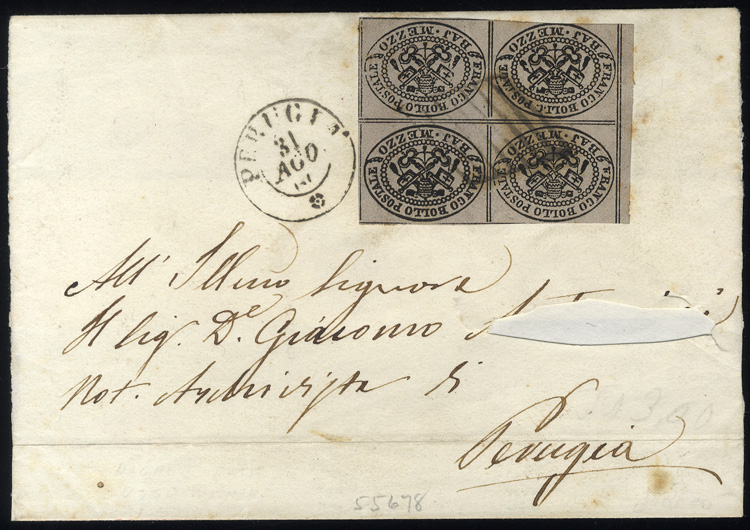 FRANCO BOLLO POSTALE
BAJ. MEZZO
FRANCO BOLLO POSTALE
BAJ. MEZZO
FRANCO BOLLO POSTALE
BAJ. MEZZO
FRANCO BOLLO POSTALE
BAJ. MEZZO
PERUGIA
31
AGO
All' Illmo Signore
Il Sig. De. Giacomo
Not. Archivista di
Perugia
55678